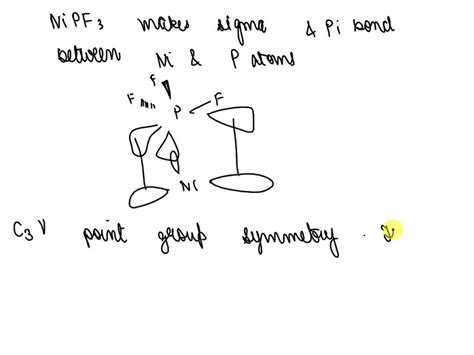 NiPF3 makes sigma & Pi bond
between Ni & P atoms
F
F P F
Ni
C3V point group symmetry.